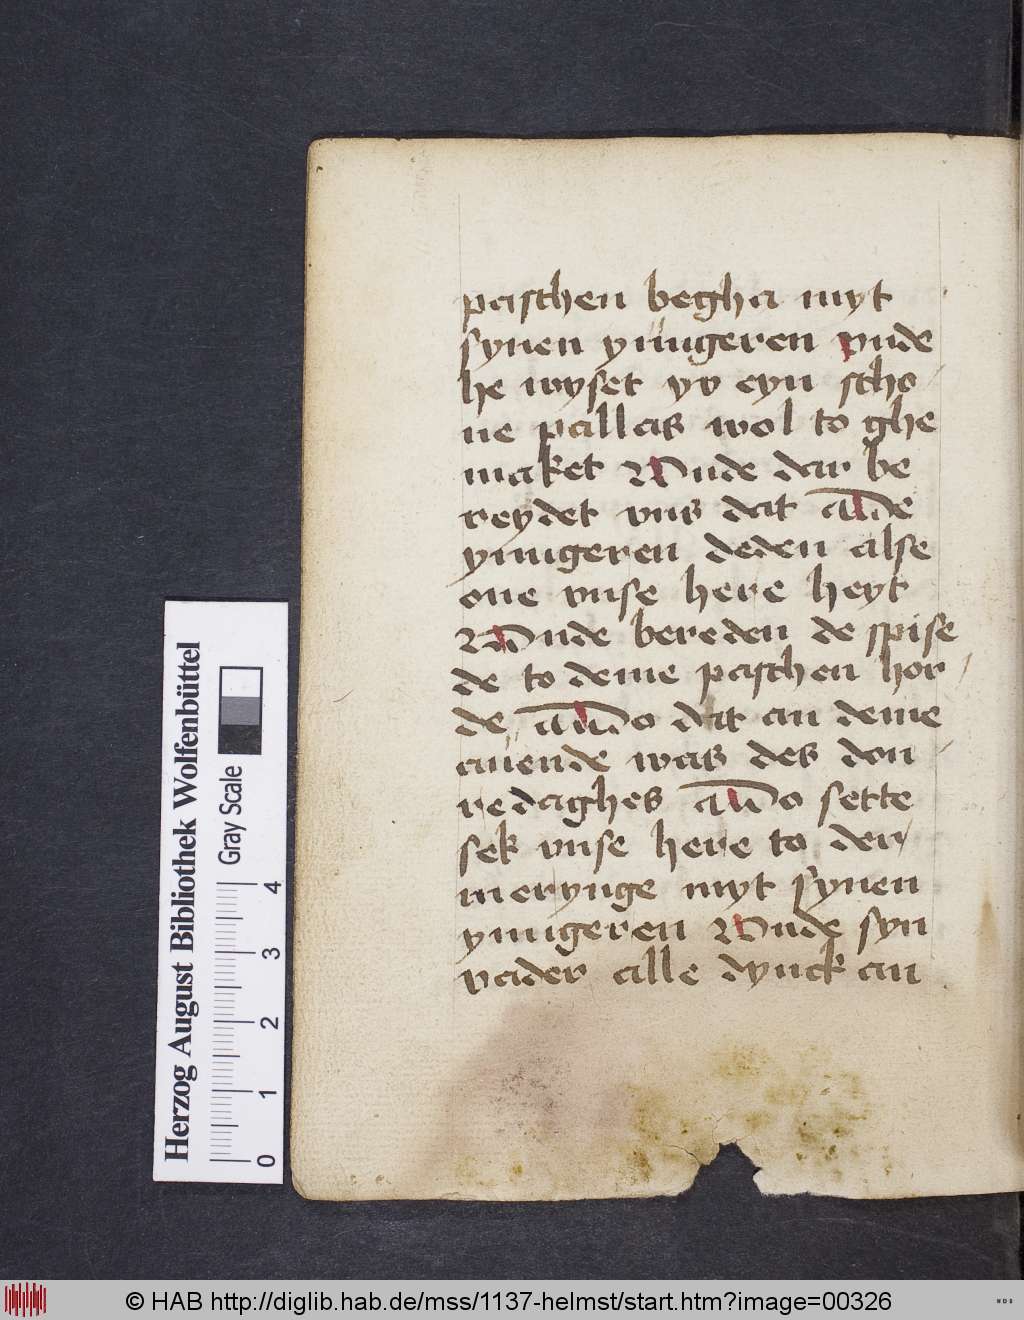 paschen begha myt
synen yungeren vnde
he wyset yv eyn scho
ne pallas wol to ghe
maket Vnde dar be
reydet vns dat āūde
yungeren deden alse
one vnse here heyt
Vnde bereden de spise
de to deme paschen hor
de āūdo dat an deme
auende was des don
redaghes āūdo sette
sek vnse here to der
merynge myt synen
yungeren Vnde syn
vader alle dynck an
Herzog August Bibliothek Wolfenbüttel
Gray Scale
0 1 2 3 4
© HAB http://diglib.hab.de/mss/1137-helmst/start.htm?image=00326